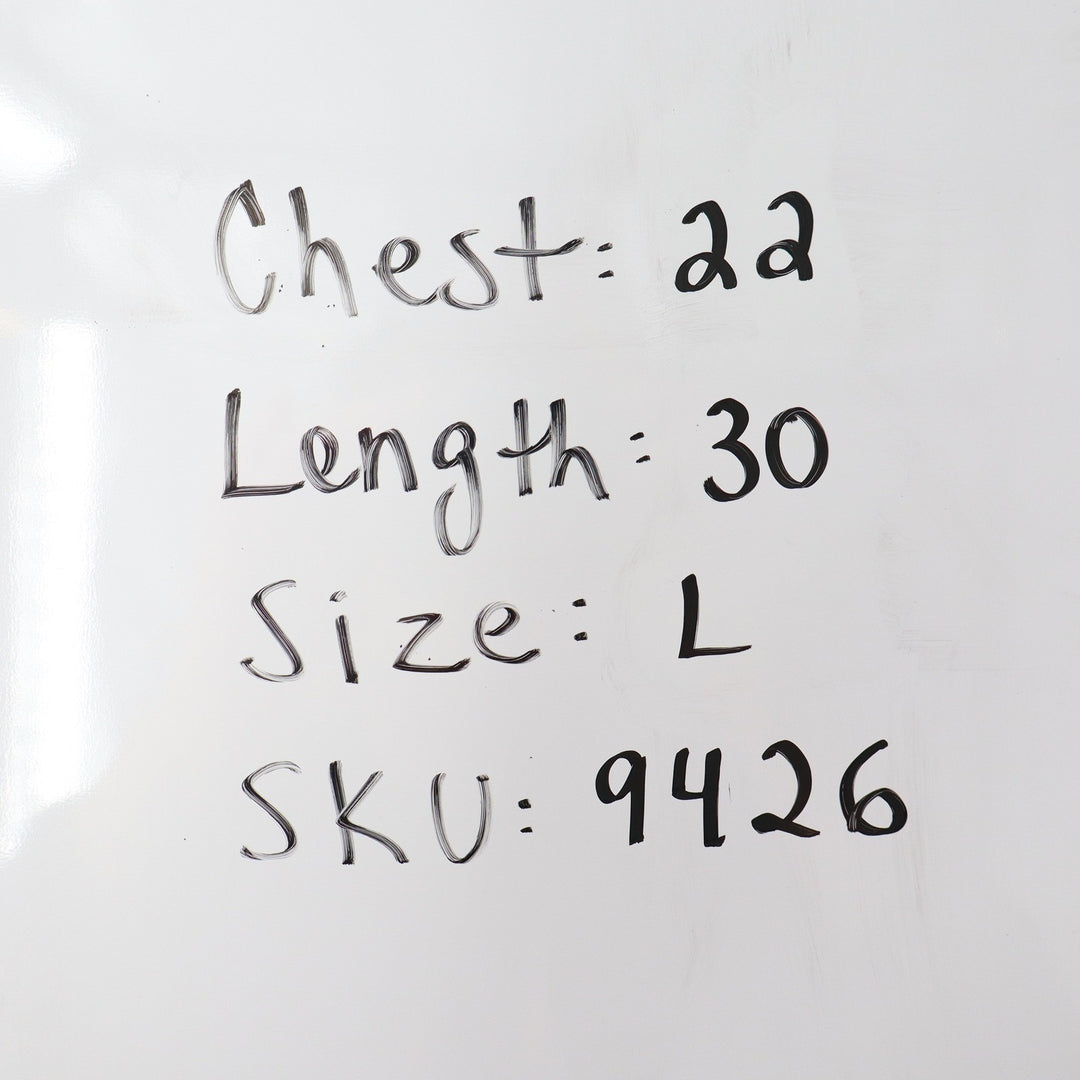 Chest: 22
Length: 30
Size: L
SKU: 9426